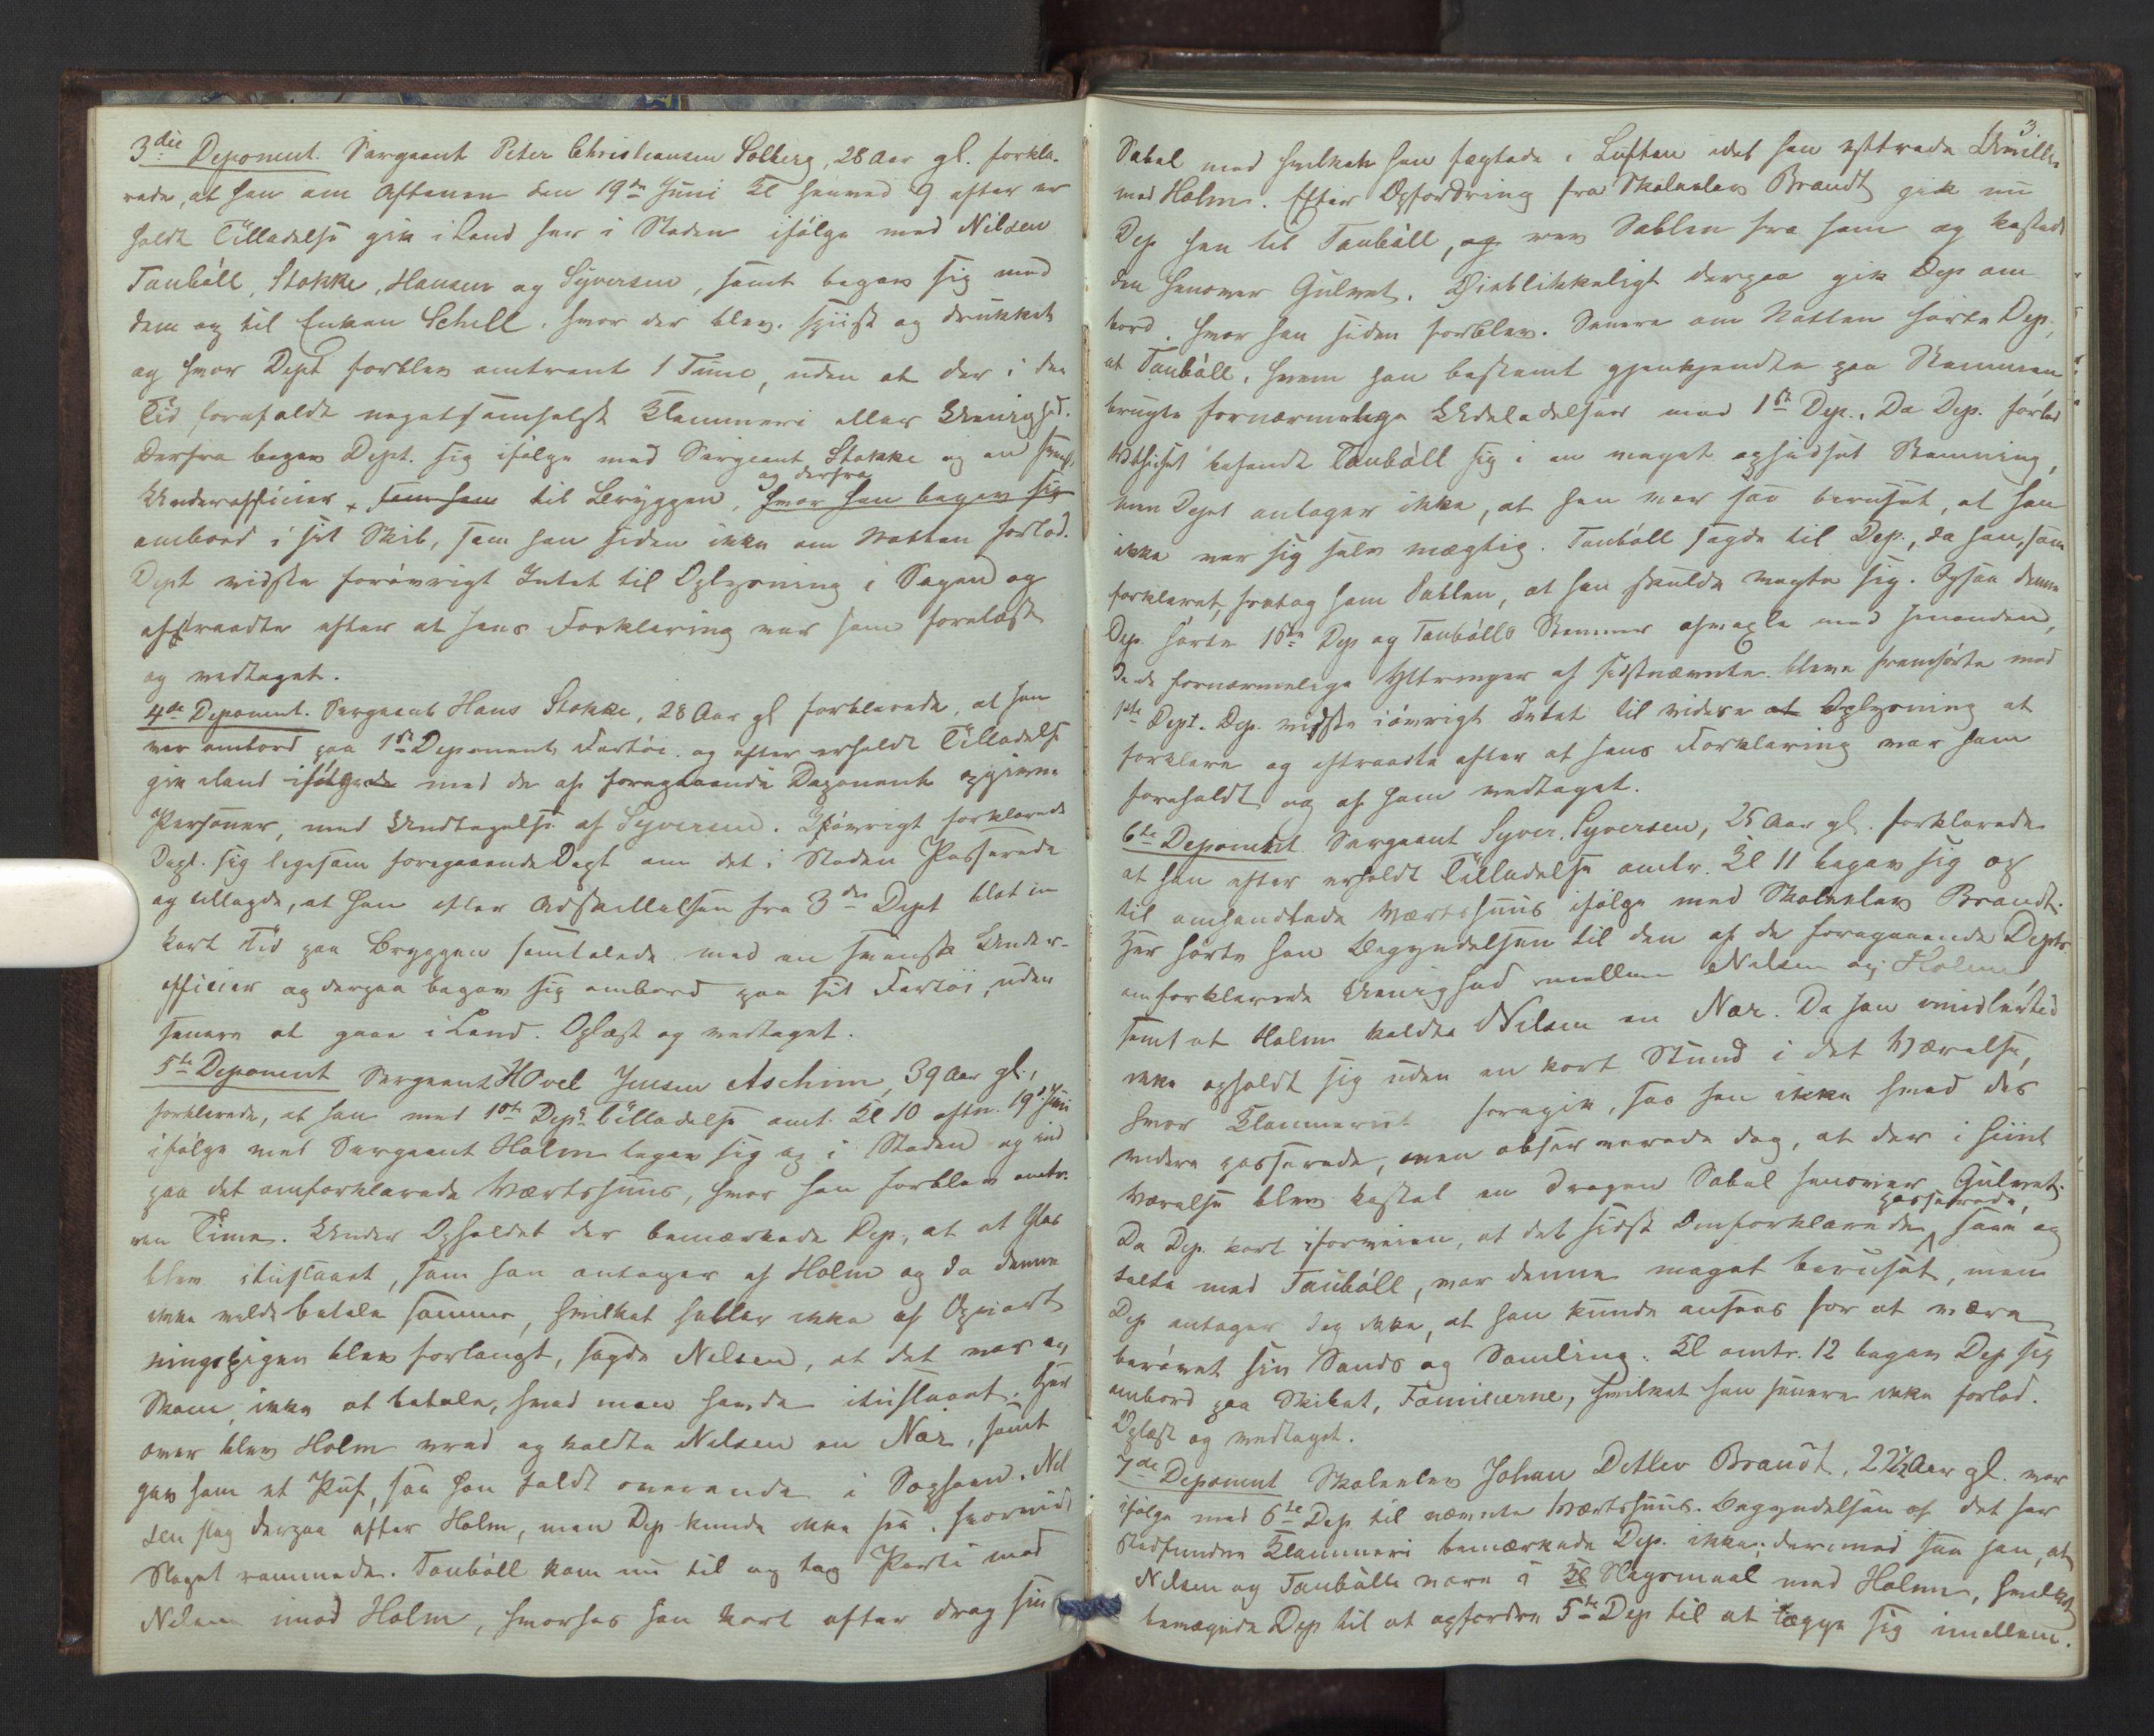 3die Deponent. Sergeant Peter Christiansen Solberg, 28 Aar gl. forkla-
rede, at han om Aftenen den 19de Juni Kl henved 9 efter er
holdt Tilladelse gik i Land her i Staden ifølge med Nilsen
Taubøll, Stokke, Hansen og Syversen, samt begav sig med
dem op til Enken Schell, hvor der blev spiist og drukket
og hvor Dept forblev omtrent 1 Time, uden at der i den
Tid forefaldt nogetsomhelst Klammeri eller Uenighed.
Derfra begav Dept. sig ifølge med Sergeant Stokke og en svensk
Underofficier, til Bryggen, og derfra hvor han begav sig
ombord i sit Skib, som han siden ikke om Natten forlod.
Dept vidste forøvrigt Intet til Oplysning i Sagen og
aftraadte efter at hans Forklaring var ham forelæst
og vedtaget.
4de Deponent. Sergeant Hans Stokke, 28 Aar gl forklarede, at han
var ombord paa 1ste Deponents Fartøi og efter erholdt Tilladelse
gik iland ifølge med de af foregaaende Deponent opgivne
Personer, med Undtagelse af Syversen. Iøvrigt forklarede
Dept. sig ligesom foregaaende Dept om det i Staden Passerede
og tillagde, at han efter Adskillelsen fra 3die Dept blot en
kort Tid paa Bryggen samtalede med en svensk Under-
officier og derpaa begav sig ombord paa sit Fartøi, uden
senere at gaae i Land. Oplæst og vedtaget.
5te Deponent Sergeant Hovel Jensen Aschim, 39 Aar gl.,
forklarede, at han med 1ste Dep. Tilladelse omt. Kl 10 Aftn. 19d. Juni
ifølge med Sergeant Holm begav sig op i Staden og ind
paa det omforklarede Værtshuus, hvor han forblev omtr.
een Time. Under Opholdet der bemærkede Dep, at et Glas
blev ituslaaet, som han antager af Holm og da denne
ikke vilde betale samme, hvilket heller ikke af Opvart
ningspigen blev forlangt, sagde Nilsen, at det var en
Skam, ikke at betale, hvad man havde ituslaaet. Her
over blev Holm vred og kaldte Nilsen en Nar, samt
gav ham et Puf, saa han faldt overende i Sophaen. Nil
sen slog derpaa efter Holm, men Dep kunde ikke see, hvorvidt
Slaget rammede. Taubøll kom nu til og tog Parti med
Nilsen imod Holm, hvorhos han kort efter drog sin
3
Sabel med hvilken han fægtede i Luften idet han yttrede Uvillie
mod Holm. Efter Opfordring fra Skoleelev Brandt gik nu
Dep hen til Taubøll, og rev Sablen fra ham og kastede
den henover Gulvet. Øieblikkeligt derpaa gik Dep om
bord, hvor han siden forblev. Senere om Natten hørte Dep,
at Taubøll, hvem han bestemt gjenkjendte paa Stemmen
brugte fornærmelige Udeladelser mod 1ste Dep. Da Dep. forlod
Værtshuset befandt Taubøll sig i en meget ophidset Stemning,
men Dept antager ikke, at han var saa beruset, at han
ikke var sig selv mægtig. Taubøll sagde til Dep., da han, som
forklaret, fratog ham Sablen, at han skulde vogte sig. Ogsaa denne
Dep. hørte 1ste Dep og Taubølls Stemmer afvexle med hinanden,
da de fornærmelige Yttringer af sidstnævnte bleve fremførte mod
1ste Dept. Dep. vidste iøvrigt Intet til videre Oplysning at
forklare og aftraadte efter at hans Forklaring var ham
foreholdt og af ham vedtaget.
6te Deponent Sergeant Syver Syversen, 25 Aar gl. forklarede
at han efter erholdt Tilladelse omtr. Kl 11 begav sig op
til omhandlede Værtshuus ifølge med Skoleelev Brandt.
Her hørte han Begyndelsen til den af de foregaaende Depts
omforklarede Uenighed mellem Nilsen og Holm,
samt at Holm kaldte Nilsen en Nar. Da han imidlertid
ikke opholdt sig uden en kort Stund i det Værelse,
hvor Klammeriet foregik, saa han ikke hvad der
videre passerede, men observerede dog, at der i hiint
Værelse blev kastet en dragen Sabel henover Gulvet.
Da Dep. kort iforveien, at det sidst Omforklarede passerede, saae og
talte med Taubøll, var denne meget beruset, men
Dep antager dog ikke, at han kunde ansees for at være
berøvet sin Sands og Samling. Kl omtr. 12 begav Dep sig
ombord paa Skibet, Familierne, hvilket han senere ikke forlod.
Oplæst og vedtaget.
7de Deponent Skoleelev Johan Ditlev Brandt, 22½ Aar gl. var
ifølge med 6te Dep til nævnte Værtshuus. Begyndelsen af det her
stedfundne Klammeri bemærkede Dep. ikke; derimod saa han, at
Nilsen og Taubøll vare i Slagsmaal med Holm, hvilket
bevægede Dep til at opfordre 5te Dep til at lægge sig imellem.